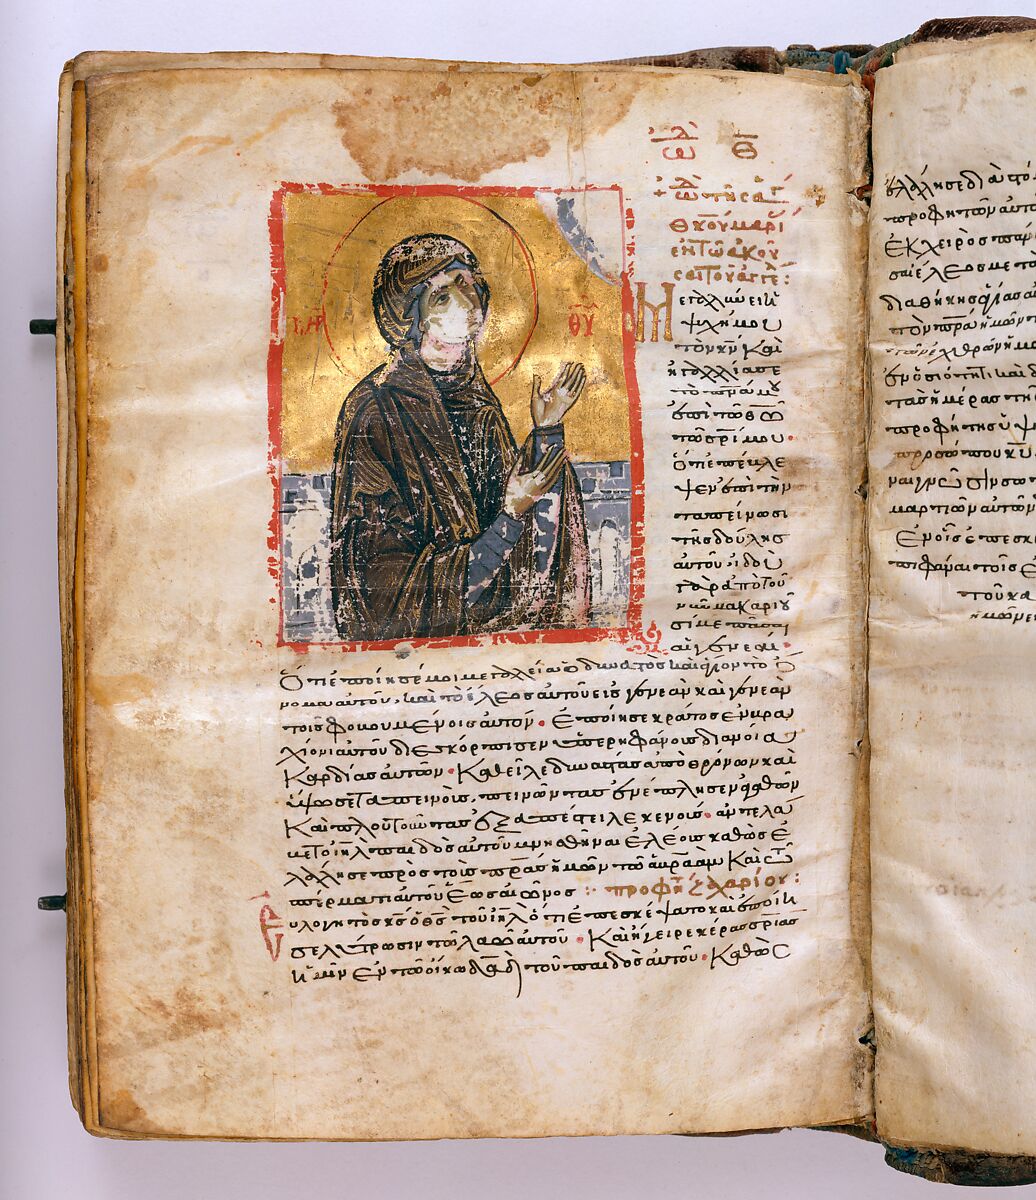 ὠδὴ Θ
ΜΗΡ ΘΥ
ὠδὴ τῆς ἁγί
Θκου μαρί
ἐν τῶ ἀκοῦ
σαι τοῦ ἀγγέ:
Μεγαλύνει ἡ
ψυχή μου
τὸν κν καὶ
ἠγαλλίασε
τὸ πνα μου
ἐπὶ τῶ θω
τῶ σρι μου·
ὅτι ἐπέβλε
ψεν ἐπὶ τὴν
ταπείνωσι
τῆς δούλης
αὐτοῦ· ἰδοὺ
γὰρ ἀπὸ τοῦ
νῦν μακαριοῦ
σί με πᾶσαι
αἱ γενεαί·
Ὅτι ἐποίησέ μοι μεγαλεῖα ὁ δυνατὸς καὶ ἅγιον τὸ ὄ
νομα αὐτοῦ, καὶ τὸ ἔλεος αὐτοῦ εἰς γενεὰν καὶ γενεὰν
τοῖς φοβουμένοις αὐτόν· Ἐποίησε κράτος ἐν βρα
χίονι αὐτοῦ διεσκόρπισεν ὑπερηφάνους διανοία
Καρδίας αὐτῶν· Καθεῖλε δυνάστας ἀπὸ θρόνων καὶ
ὕψωσε ταπεινούς, πεινῶντας ἐνέπλησεν ἀγαθῶν
Καὶ πλουτοῦντας ἐξαπέστειλε κενούς· ἀντελά
βετο ιηλ παιδὸς αὐτοῦ μνησθῆναι ἐλέους καθὼς ἐ
λάλησε πρὸς τοὺς πρας ἡμῶν τῶ ἀβραὰμ Καὶ τῶ
σπέρματι αὐτοῦ ἕως αἰῶνος : προφη ζαχαρίου:
Εὐλογητὸς κς ὁ θς τοῦ ιηλ ὅτι ἐπεσκέψατο καὶ ἐποίη
σε λύτρωσιν τῶ λαῶ αὐτοῦ· Καὶ ἤγειρε κέρας σριας
ἡμῖν ἐν τῶ οἴκω δαδ τοῦ παιδὸς αὐτοῦ· Καθὼς
ἐλάλησε διὰ στό
προφητῶν αὐτ
ἐκ χειρὸς πάν
σαι ἔλεος μετὰ
διαθήκης ἁγίας
τὸν πρα ἡμῶν
τῶν ἐχθρῶν ἡμ
ἐν ὁσιότητι καὶ δ
τὰς ἡμέρας τῆς
προφήτης ὑψ
προσώπου κυ
ναι γνῶσιν σω
μαρτιῶν αὐτῶν
ἐν οἷς ἐπεσκ
ἐπιφᾶναι τοῖς
τοῦ κα
ἡμῶν ε